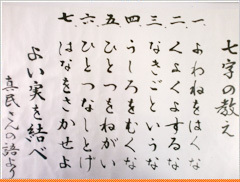 七字の教え
一、よわねをはくな
二、くよくよするな
三、なきごというな
四、うしろをむくな
五、ひとつをねがい
六、ひとつをなしとげ
七、はなをさかせよ
よい実を結べ
真民さんの語より